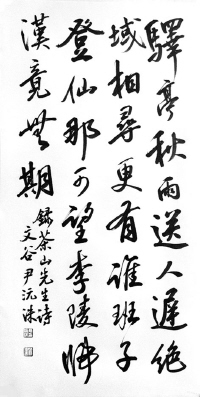 驛亭秋雨送人遲絶
域相尋更有誰班子
登仙那可望李陵歸
漢竟無期
錄茶山先生詩
文谷尹沅洙